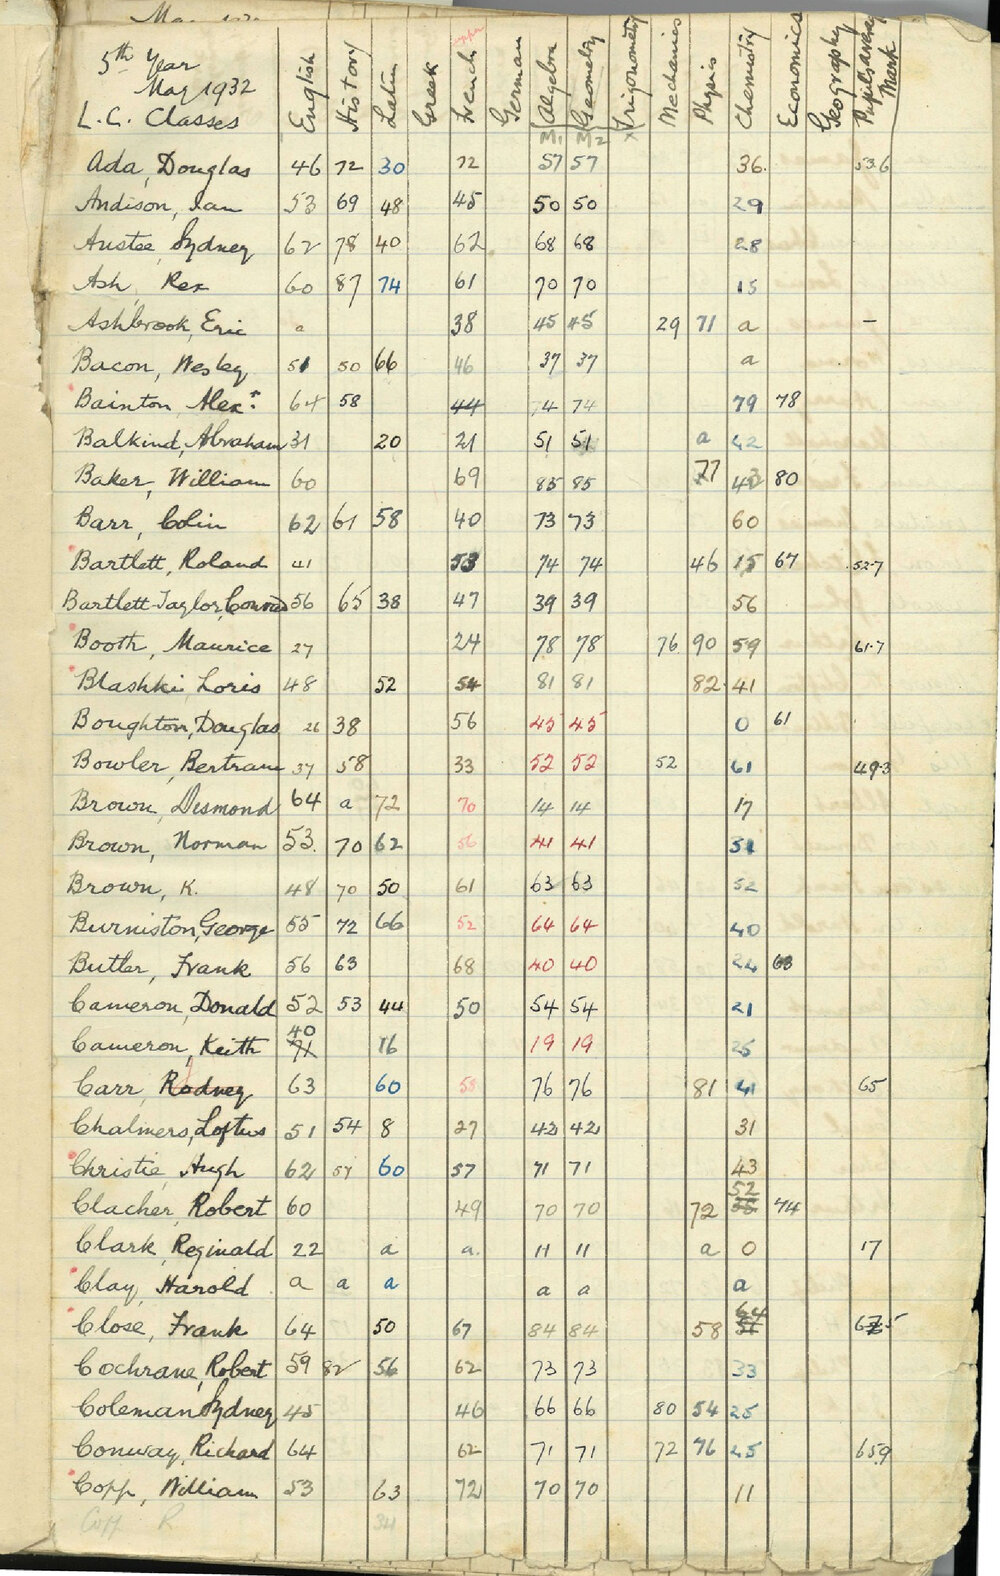 5th Year
May 1932
L.C. Classes
English History Latin Greek French German Algebra Geometry Trigonometry Mechanics Physics Chemistry Economics Geography Pupils average Mark
M1 M2 x
Ada, Douglas 46 72 30 72 57 57 36 53.6
Andison, Ian 53 69 48 45 50 50 29
Anstee, Sydney 62 78 40 62 68 68 28
Ash, Rex 60 87 74 61 70 70 15
Ashbrook, Eric a 38 45 45 29 71 a –
Bacon, Wesley 51 50 66 46 37 37 a
Bainton, Alexr: 64 58 44 74 74 79 78
Balkind, Abraham 31 20 21 51 51 a 42
Baker, William 60 69 85 85 77 80
Barr, Colin 62 61 58 40 73 73 60
Bartlett, Roland 41 53 74 74 46 15 67 52.7
Bartlett-Taylor, Conrad 56 65 38 47 39 39 56
Booth, Maurice 27 24 78 78 76 90 59 61.7
Blashki Loris 48 52 54 81 81 82 41
Boughton, Douglas 26 38 56 45 45 0 61
Bowler, Bertram 37 58 33 52 52 52 61 49.3
Brown, Desmond 64 a 72 70 14 14 17
Brown, Norman 53 70 62 56 41 41 51
Brown, K. 48 70 50 61 63 63 52
Burniston, George 55 72 66 52 64 64 40
Butler, Frank 56 63 68 40 40 24
Cameron, Donald 52 53 44 50 54 54 21
40
Cameron, Keith 71 16 19 19 25
Carr, Rodney 63 60 76 76 81 41 65
Chalmers, Loftus 51 54 8 27 42 42 31
Christie, Hugh 62 57 60 57 71 71 43
52
Clacher, Robert 60 49 70 70 72 74
Clark, Reginald 22 a a. 11 11 a 0 17
Clay, Harold a a a a a a
64
Close, Frank 64 50 67 84 84 58
Cochrane, Robert 59 82 56 62 73 73 33
Coleman Sydney 45 46 66 66 80 54 25
Conway, Richard 64 62 71 71 72 76 25 65.9
Copp, William 53 63 72 70 70 11
Copp R 34